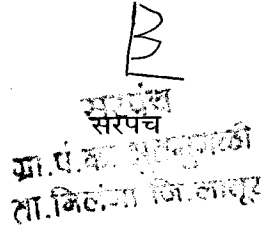 सरपंच
सरपंच
ग्रा.पं.का.
ता.निलंगा जि.लातूर